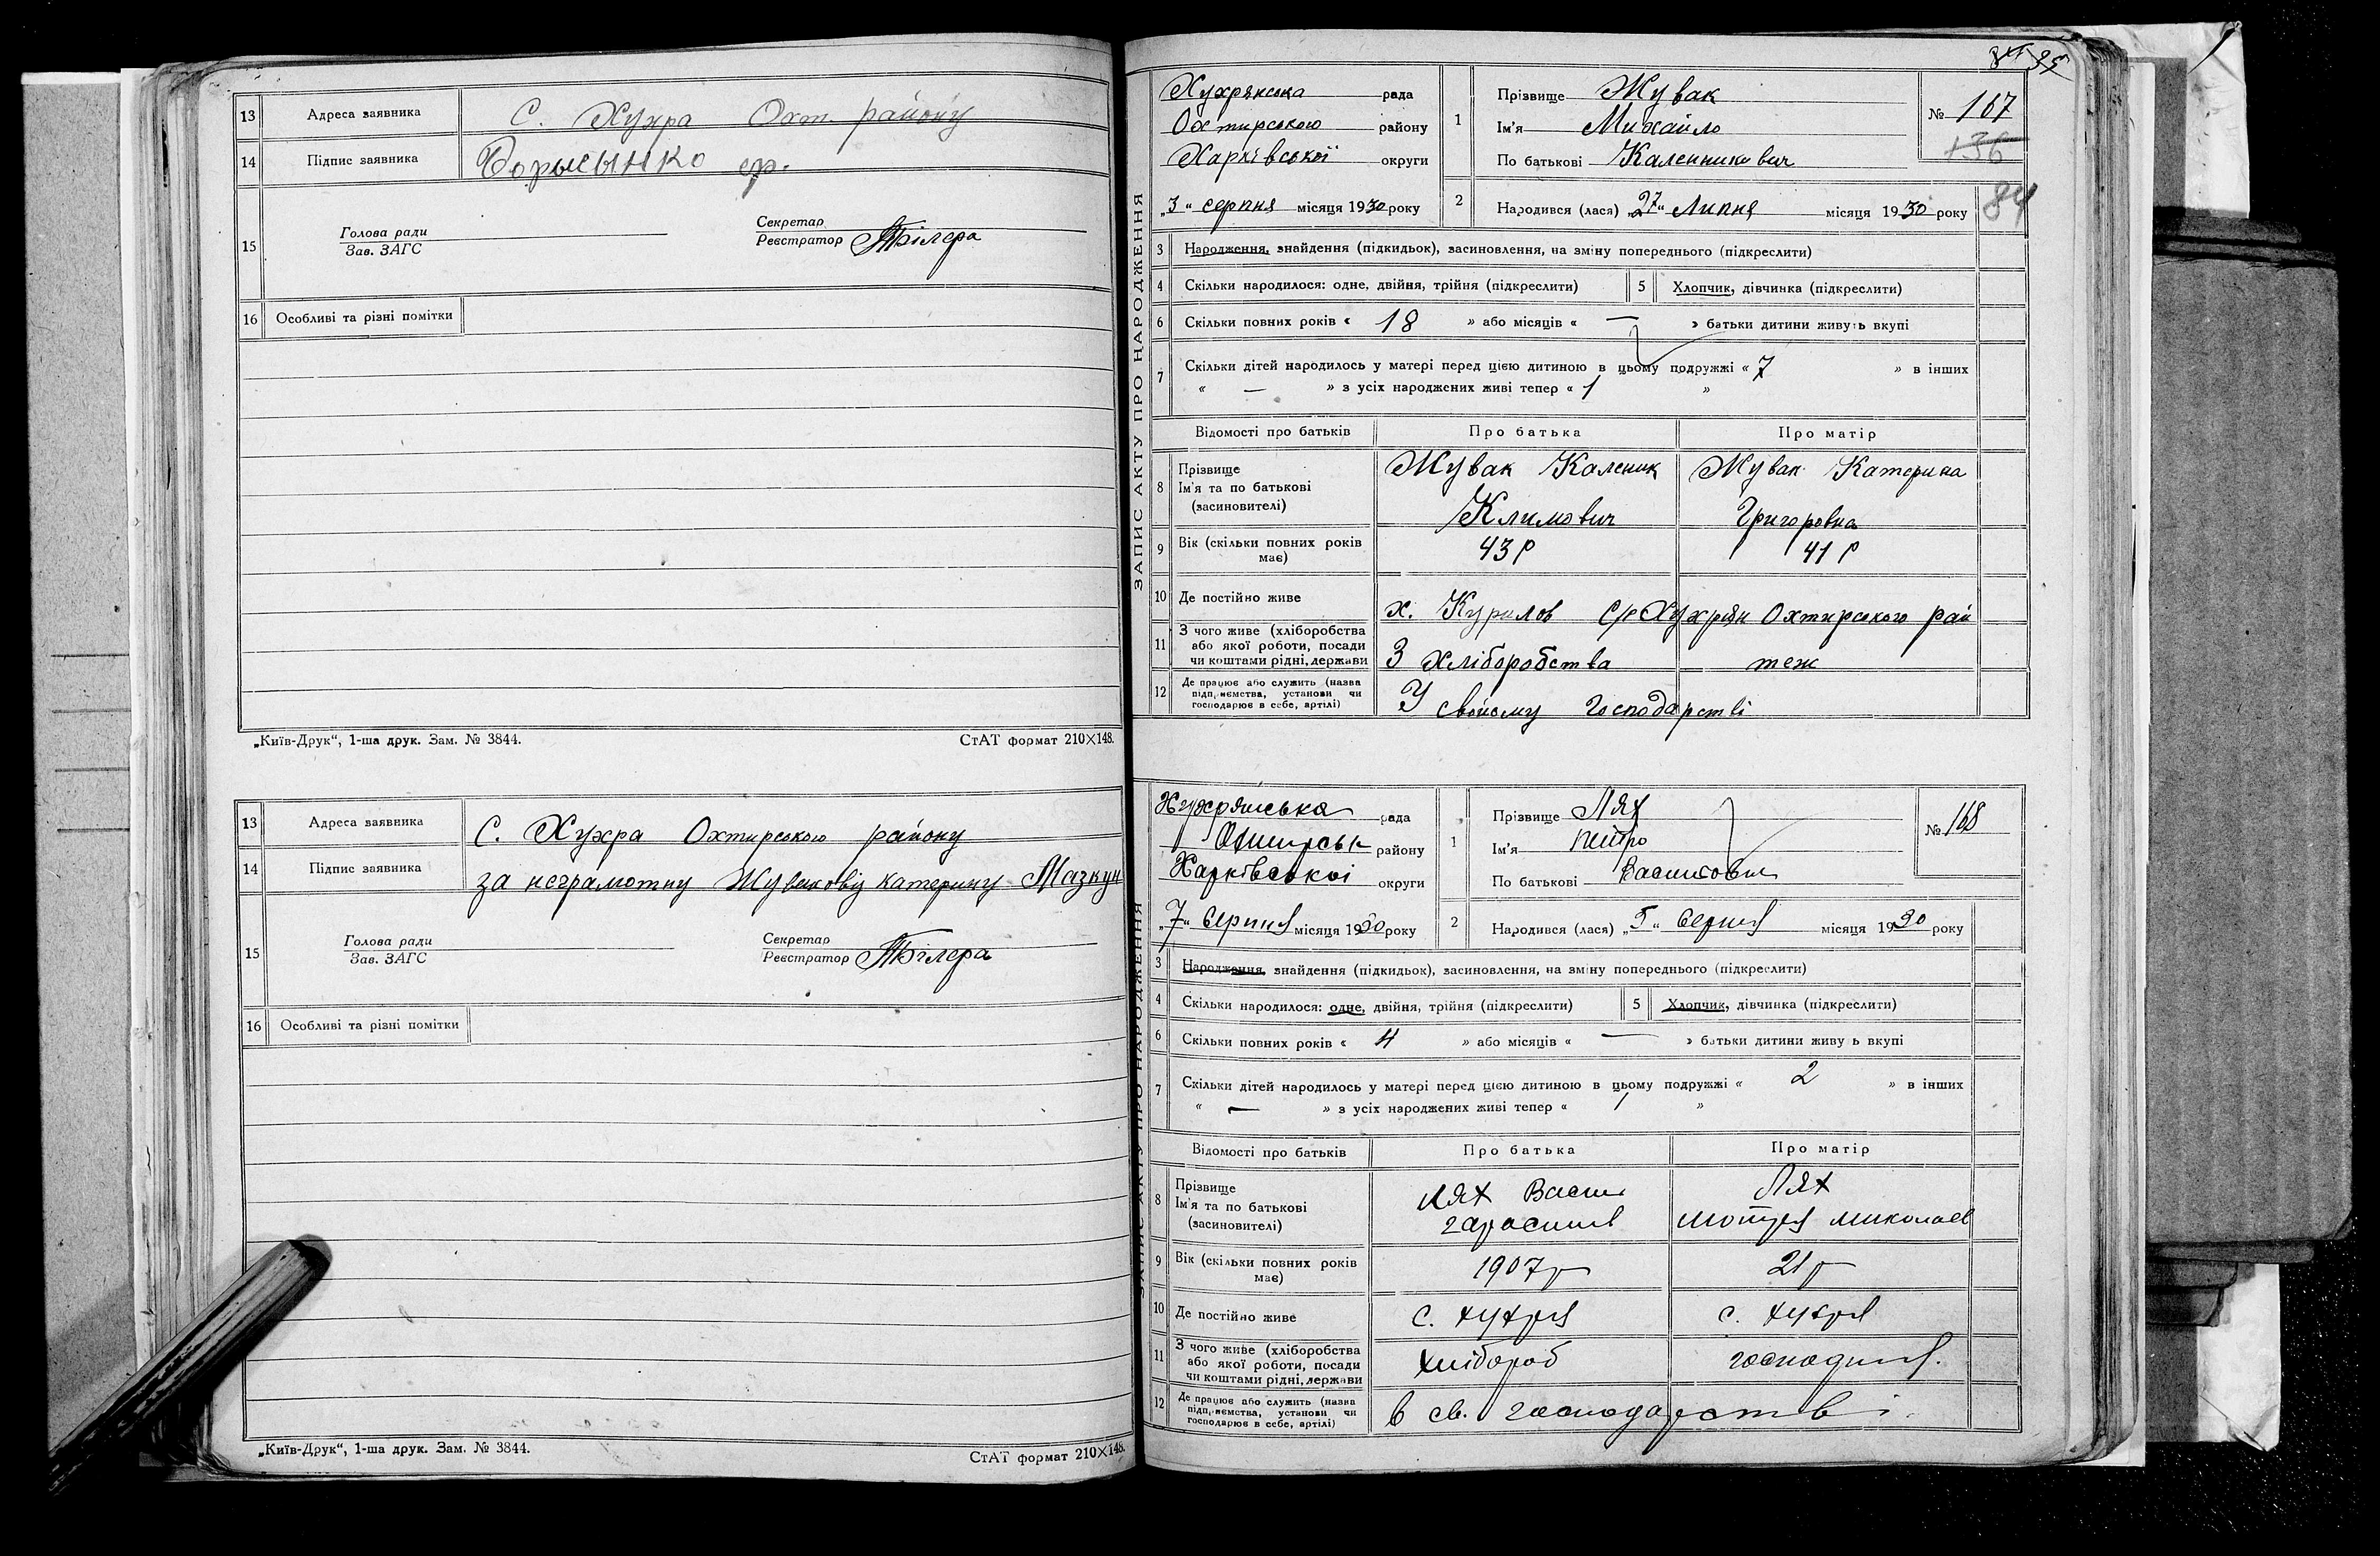 13 Адреса заявника С. Хухра Охт. району
14 Підпис заявника Борысынко ф.
15 Голова ради Зав. ЗАГС Секретар Реєстратор
16 Особливі та різні помітки
„Київ-Друк“, 1-ша друк. Зам. № 3844. СтАТ формат 210×148.
13 Адреса заявника С. Хухра Охтирського району
14 Підпис заявника за неграмотну Жувакову катерину Мазкун
15 Голова ради Зав. ЗАГС Секретар Реєстратор
16 Особливі та різні помітки
„Київ-Друк“, 1-ша друк. Зам. № 3844. СтАТ формат 210×148.
84 85
ЗАПИС АКТУ ПРО НАРОДЖЕННЯ
Хухрянська рада
Охтирського району
Харківської округи
„3“ серпня місяця 1930 року
1 Прізвище Жувак
Ім'я Михайло
По батькові Каленикович
№ 167
136
2 Народився (лася) „27“ Липня місяця 1930 року
84
3 Народження, знайдення (підкидьок), засиновлення, на зміну попереднього (підкреслити)
4 Скільки народилося: одне, двійня, трійня (підкреслити) 5 Хлопчик, дівчинка (підкреслити)
6 Скільки повних років « 18 » або місяців « — » батьки дитини живуть вкупі
7 Скільки дітей народилось у матері перед цією дитиною в цьому подружжі « 7 » в інших
« — » з усіх народжених живі тепер « 1 »
Відомості про батьків Про батька Про матір
8 Прізвище Ім'я та по батькові (засиновителі)
Жувак Каленик
Климович
Жувак Катерина
Григоровна
9 Вік (скільки повних років має) 43 р 41 р
10 Де постійно живе х. Курилов С/р Хухрян Охтирського рай
11 З чого живе (хліборобства або якої роботи, посади чи коштами рідні, держави З хліборобства теж
12 Де працює або служить (назва підприємства, установи чи господарює в себе, артілі) У свойому господарстві
ЗАПИС АКТУ ПРО НАРОДЖЕННЯ
Хухрянська рада
Охтирськ району
Харківської округи
„7“ Серпня місяця 1930 року
1 Прізвище Лях
Ім'я Петро
По батькові Васильович
№ 168
2 Народився (лася) „5“ Серпня місяця 1930 року
3 Народження, знайдення (підкидьок), засиновлення, на зміну попереднього (підкреслити)
4 Скільки народилося: одне, двійня, трійня (підкреслити) 5 Хлопчик, дівчинка (підкреслити)
6 Скільки повних років « 4 » або місяців « — » батьки дитини живу ь вкупі
7 Скільки дітей народилось у матері перед цією дитиною в цьому подружжі « 2 » в інших
« — » з усіх народжених живі тепер « 1 »
Відомості про батьків Про батька Про матір
8 Прізвище Ім'я та по батькові (засиновителі)
Лях Васил
гарасимів
Лях
Мотря миколаєв
9 Вік (скільки повних років має) 1907 р 21 р
10 Де постійно живе с. Хухря с. Хухря
11 З чого живе (хліборобства або якої роботи, посади чи коштами рідні, держави хлібороб господиня.
12 Де працює або служить (назва підприємства, установи чи господарює в себе, артілі) в св. господарстві